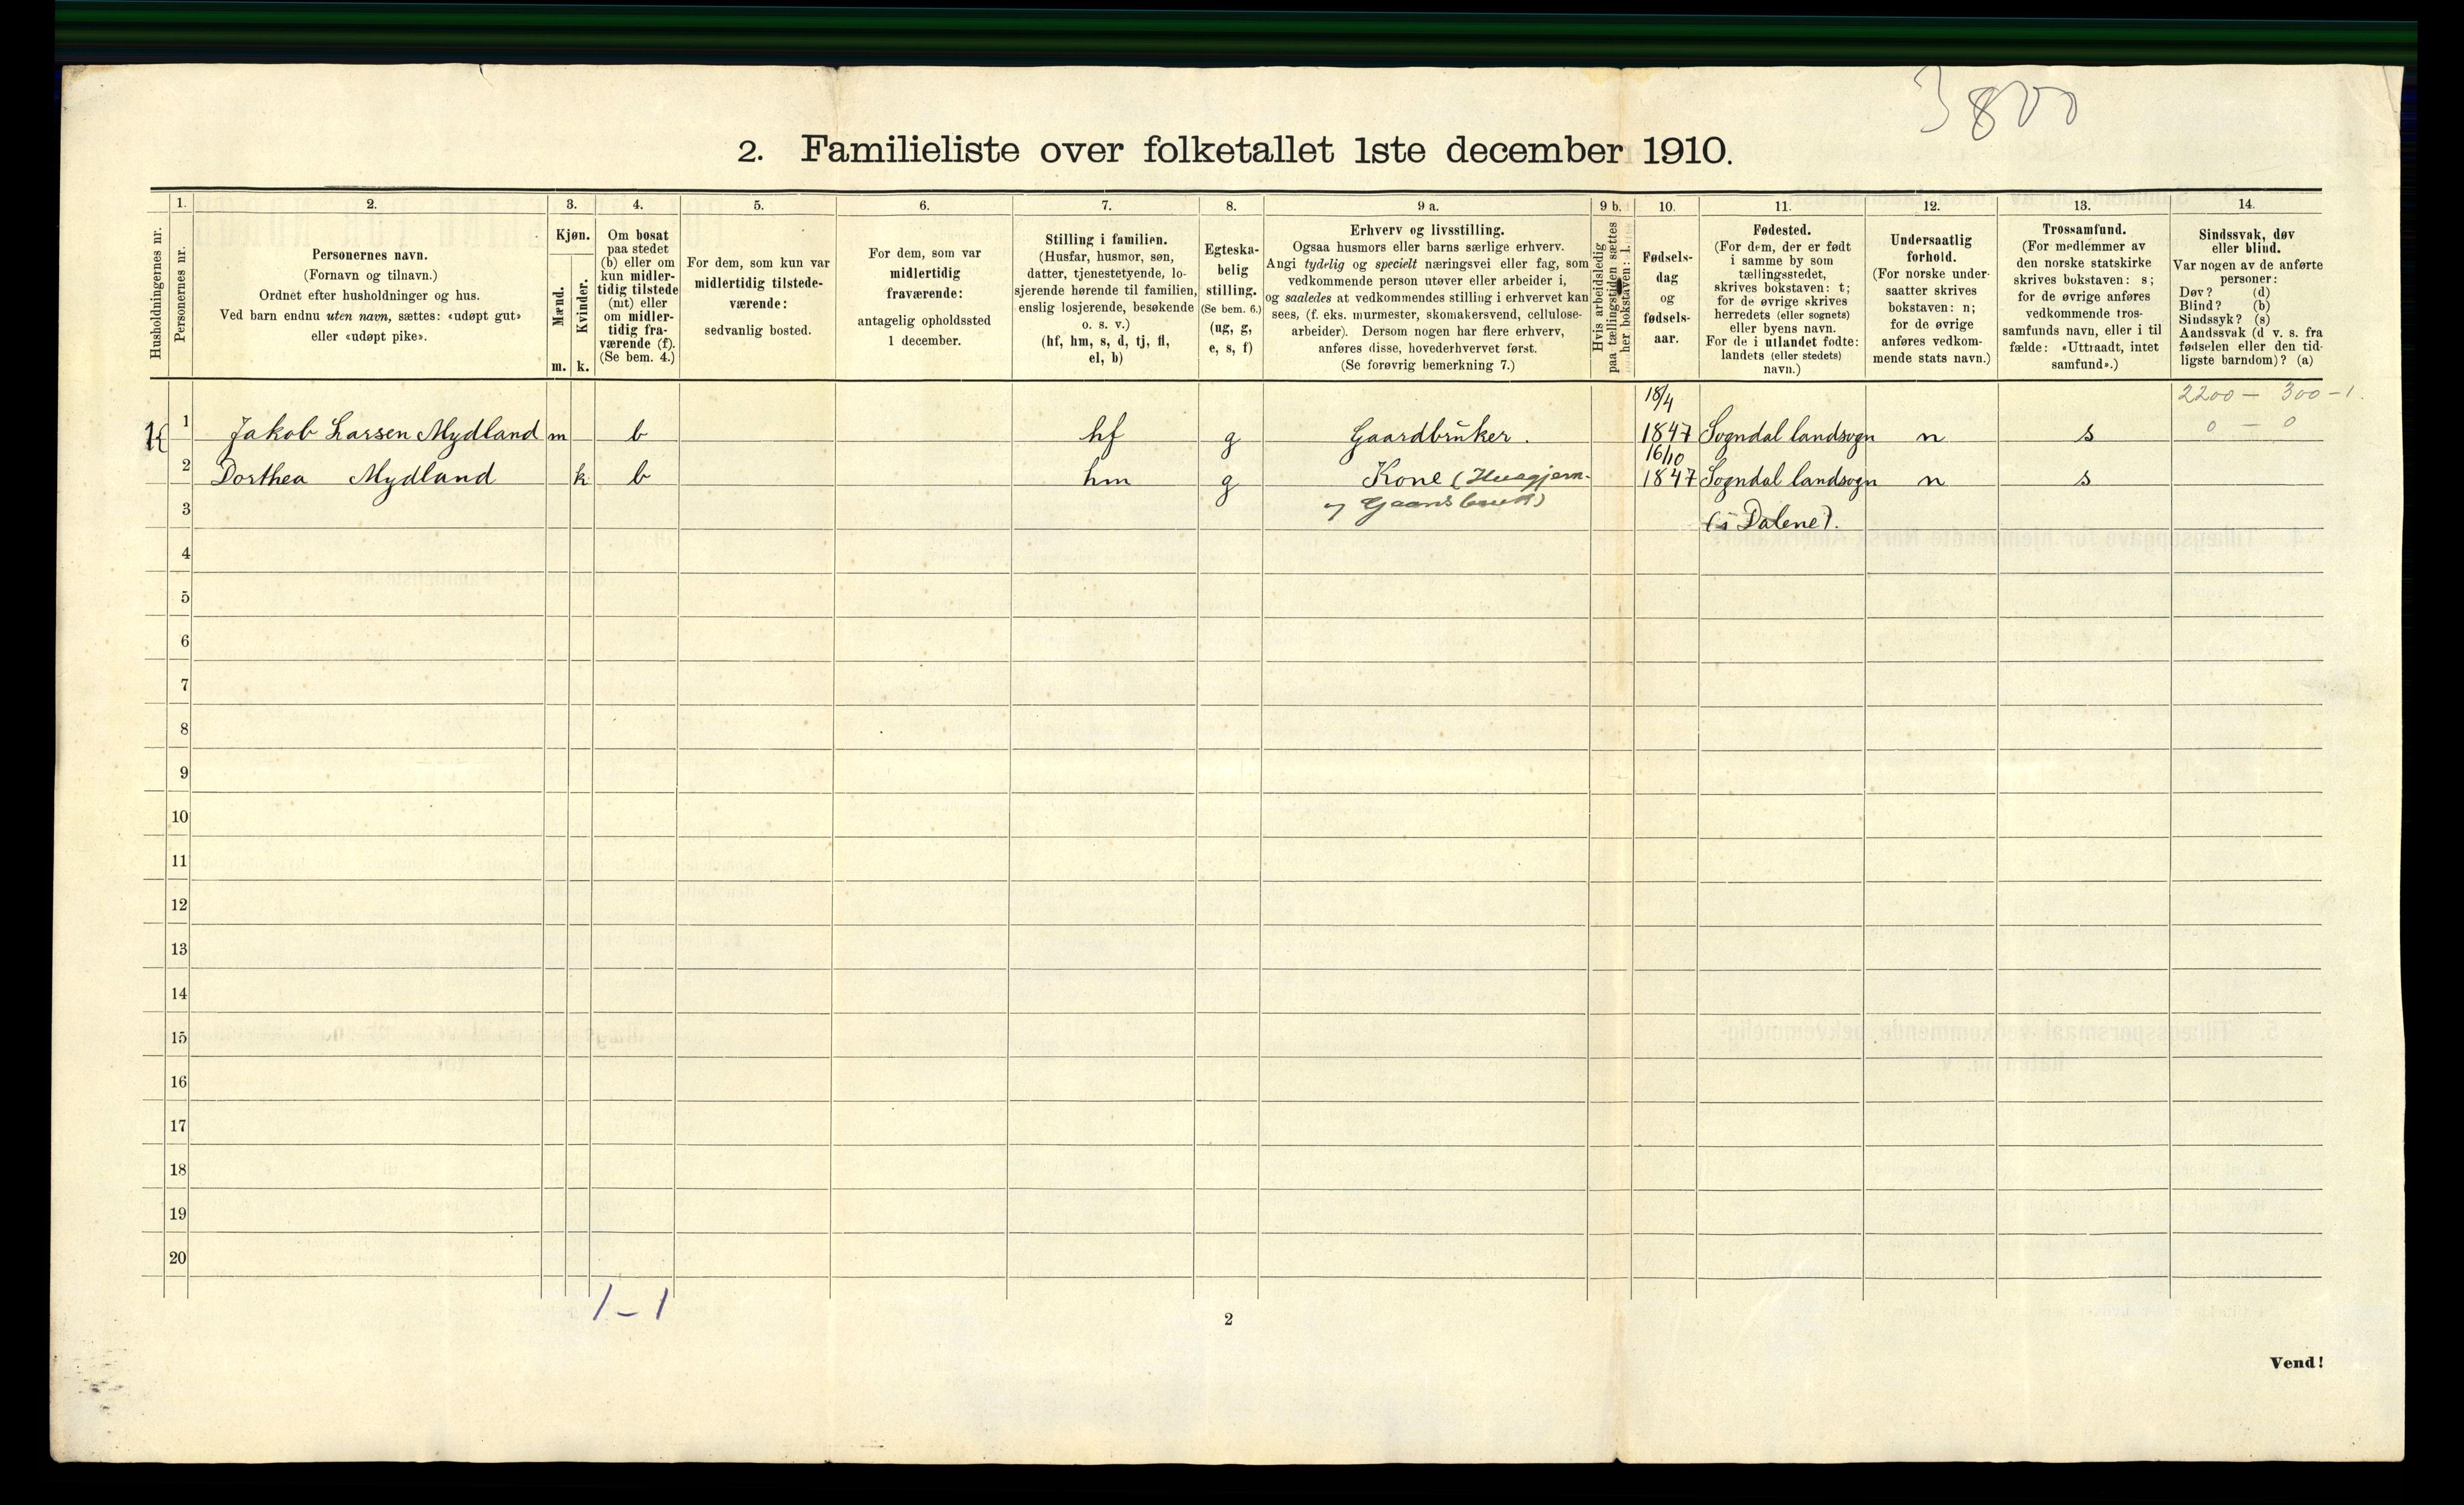 3800
2. Familieliste over folketallet 1ste december 1910.
Husholdningernes nr.
1.
Personernes nr.
2.
Personernes navn.
(Fornavn og tilnavn.)
Ordnet efter husholdninger og hus.
Ved barn endnu uten navn, sættes: «udøpt gut»
eller «udøpt pike».
3.
Kjøn.
Mænd.
Kvinder.
m.
k.
4.
Om bosat
paa stedet
(b) eller om
kun midler-
tidig tilstede
(mt) eller
om midler-
tidig fra-
værende (f).
(Se bem. 4.)
5.
For dem, som kun var
midlertidig tilstede-
værende:
sedvanlig bosted.
6.
For dem, som var
midlertidig
fraværende:
antagelig opholdssted
1 december.
7.
Stilling i familien.
(Husfar, husmor, søn,
datter, tjenestetyende, lo-
sjerende hørende til familien,
enslig losjerende, besøkende
o. s. v.)
(hf, hm, s, d, tj, fl,
el, b)
8.
Egteska-
belig
stilling.
(Se bem. 6.)
(ug, g,
e, s, f)
9 a.
Erhverv og livsstilling.
Ogsaa husmors eller barns særlige erhverv.
Angi tydelig og specielt næringsvei eller fag, som
vedkommende person utøver eller arbeider i,
og saaledes at vedkommendes stilling i erhvervet kan
sees, (f. eks. murmester, skomakersvend, cellulose-
arbeider). Dersom nogen har flere erhverv,
anføres disse, hovederhvervet først.
(Se forøvrig bemerkning 7.)
9 b.
Hvis arbeidsledig
paa tællingstiden sættes
her bokstaven: l.
10.
Fødsels-
dag
og
fødsels-
aar.
11.
Fødested.
(For dem, der er født
i samme by som
tællingsstedet,
skrives bokstaven: t;
for de øvrige skrives
herredets (eller sognets)
eller byens navn.
For de i utlandet fødte:
landets (eller stedets)
navn.)
12.
Undersaatlig
forhold.
(For norske under-
saatter skrives
bokstaven: n;
for de øvrige
anføres vedkom-
mende stats navn.)
13.
Trossamfund.
(For medlemmer av
den norske statskirke
skrives bokstaven: s;
for de øvrige anføres
vedkommende tros-
samfunds navn, eller i til
fælde: «Uttraadt, intet
samfund».)
14.
Sindssvak, døv
eller blind.
Var nogen av de anførte
personer:
Døv? (d)
Blind? (b)
Sindssyk? (s)
Aandssvak (d v. s. fra
fødselen eller den tid-
ligste barndom)? (a)
18/4 2200 – 300 – 1.
1 1 Jakob Larsen Mydland m b hf g Gaardbrŭker. 1847 Sogndal landsogn n s 0 – 0
16/10
2 Dorthea Mydland k b hm g Kone (Husgjern- 1847 Sogndal landsogn n s
3 og Gaardsbruk) (i Dalene).
4
5
6
7
8
9
10
11
12
13
14
15
16
17
18
19
20
1 – 1
2
Vend!